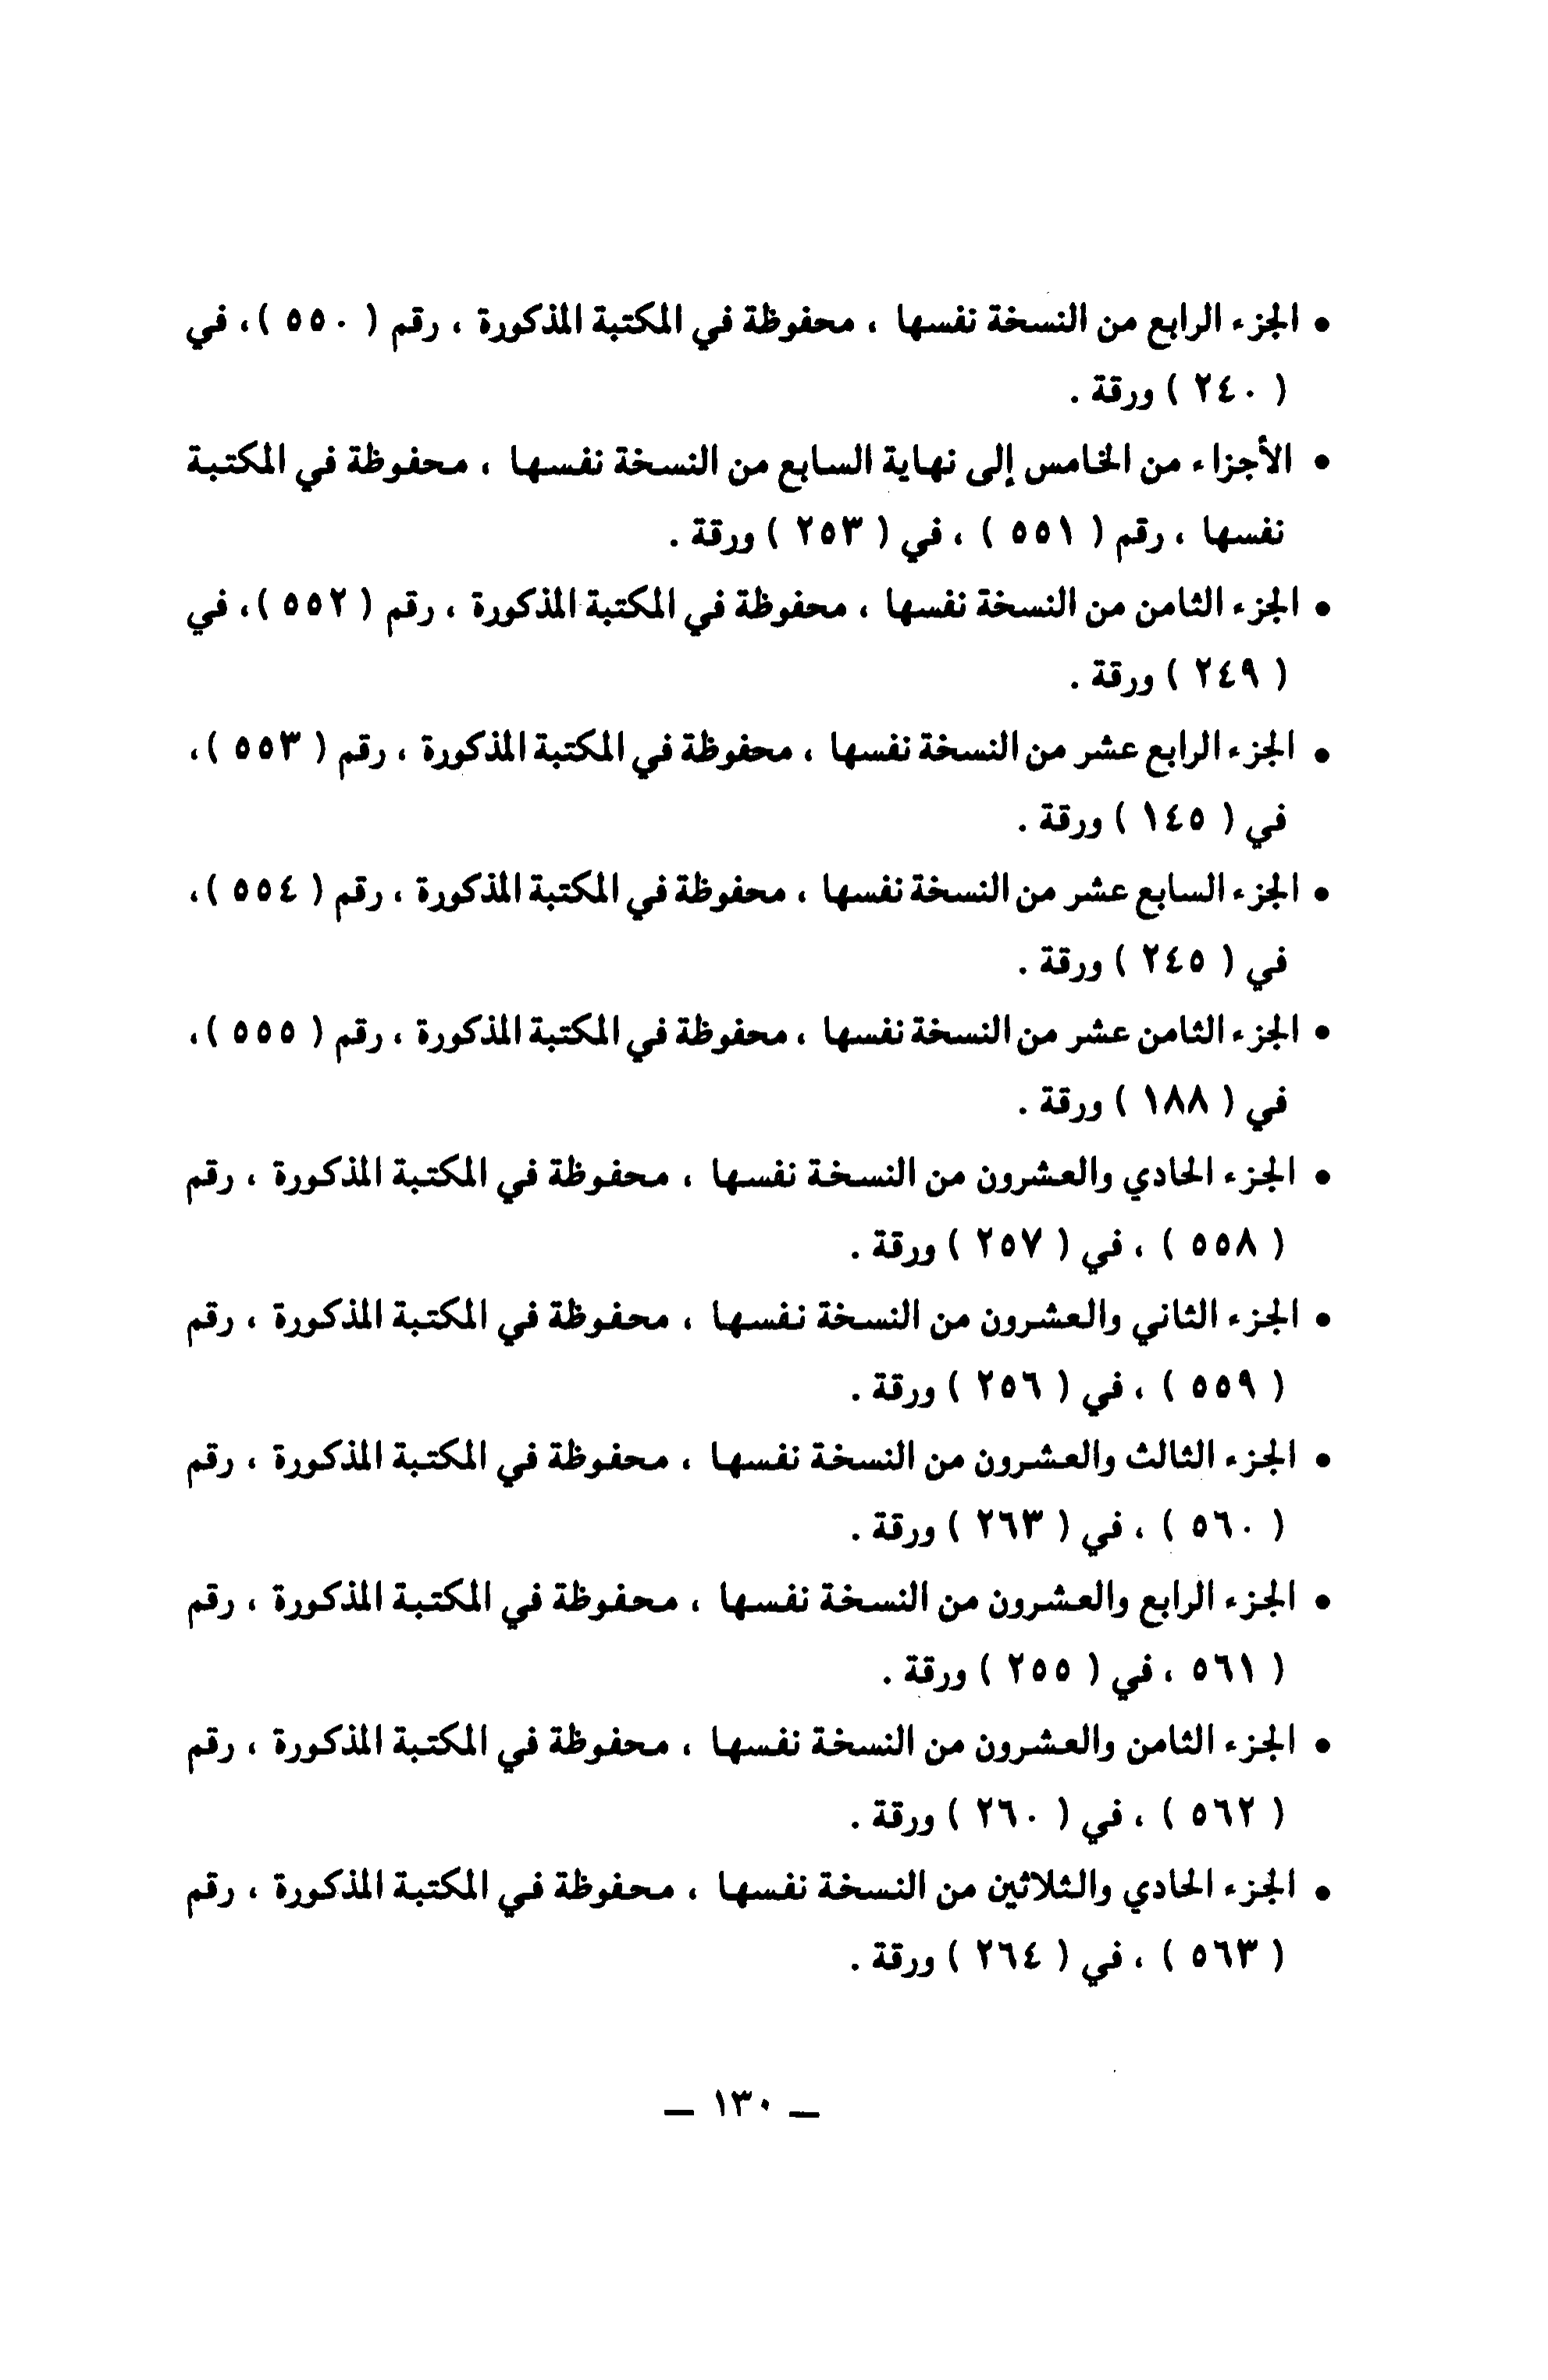 • الجزء الرابع من النسخة نفسها ، محفوظة في المكتبة المذكورة ، رقم ( ٥٥٠ )، في
( ٢٤٠ ) ورقة .
• الأجزاء من الخامس إلى نهاية السابع من النسخة نفسها ، محفوظة في المكتبة
نفسها ، رقم ( ٥٥١ ) ، في ( ٢٥٣ ) ورقة .
• الجزء الثامن من النسخة نفسها ، محفوظة في المكتبة المذكورة ، رقم ( ٥٥٢ )، في
( ٢٤٩ ) ورقة .
• الجزء الرابع عشر من النسخة نفسها ، محفوظة في المكتبة المذكورة ، رقم ( ٥٥٣ )،
في ( ١٤٥ ) ورقة .
• الجزء السابع عشر من النسخة نفسها ، محفوظة في المكتبة المذكورة ، رقم ( ٥٥٤ )،
في ( ٢٤٥ ) ورقة .
• الجزء الثامن عشر من النسخة نفسها ، محفوظة في المكتبة المذكورة ، رقم ( ٥٥٥ )،
في ( ١٨٨ ) ورقة .
• الجزء الحادي والعشرون من النسخة نفسها ، محفوظة في المكتبة المذكورة ، رقم
( ٥٥٨ ) ، في ( ٢٥٧ ) ورقة .
• الجزء الثاني والعشرون من النسخة نفسها ، محفوظة في المكتبة المذكورة ، رقم
( ٥٥٩ ) ، في ( ٢٥٦ ) ورقة .
• الجزء الثالث والعشرون من النسخة نفسها ، محفوظة في المكتبة المذكورة ، رقم
( ٥٦٠ ) ، في ( ٢٦٣ ) ورقة .
• الجزء الرابع والعشرون من النسخة نفسها ، محفوظة في المكتبة المذكورة ، رقم
( ٥٦١ ، في ( ٢٥٥ ) ورقة .
• الجزء الثامن والعشرون من النسخة نفسها ، محفوظة في المكتبة المذكورة ، رقم
( ٥٦٢ ) ، في ( ٢٦٠ ) ورقة .
• الجزء الحادي والثلاثين من النسخة نفسها ، محفوظة في المكتبة المذكورة ، رقم
( ٥٦٣ ) ، في ( ٢٦٤ ) ورقة .
ــ ١٣٠ ــ